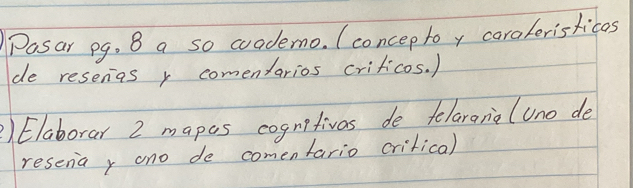 ) Pasar pg. 8 a so cuaderno. (concepto y caraterísticas
de reseñas y comentarios criticos.)
2) Elaborar 2 mapas cognitivos de telaraña (Uno de
reseña y uno de comentario critica)